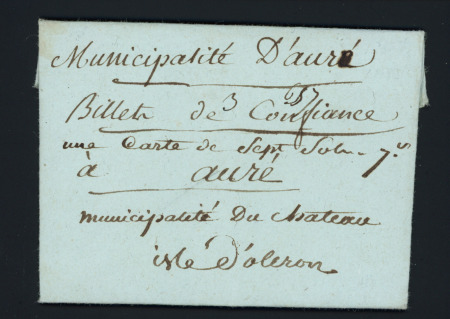 Municipalité D'auré
Billets de 3 Confiance 657
une Carte de Sept Sols - 7.s
à auré
municipalité Du chateau
isle d'oleron